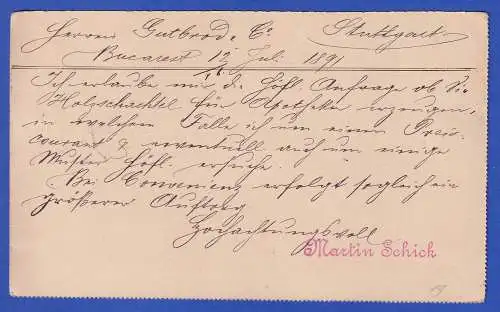 Herren Gutbrod & Co Stuttgart
Bucarest 12 Juli 1891
Ich erlaube mir d. höfl. Anfrage ob Sie
Holzschachtel für Apotheker erzeugen,
in welchem Falle ich um einen Preis-
courant & eventuell auch um einige
Muster höfl. ersuche.
Bei Convenienz erfolgt sogleich ein
größerer Auftrag
Hochachtungsvoll
Martin Schick